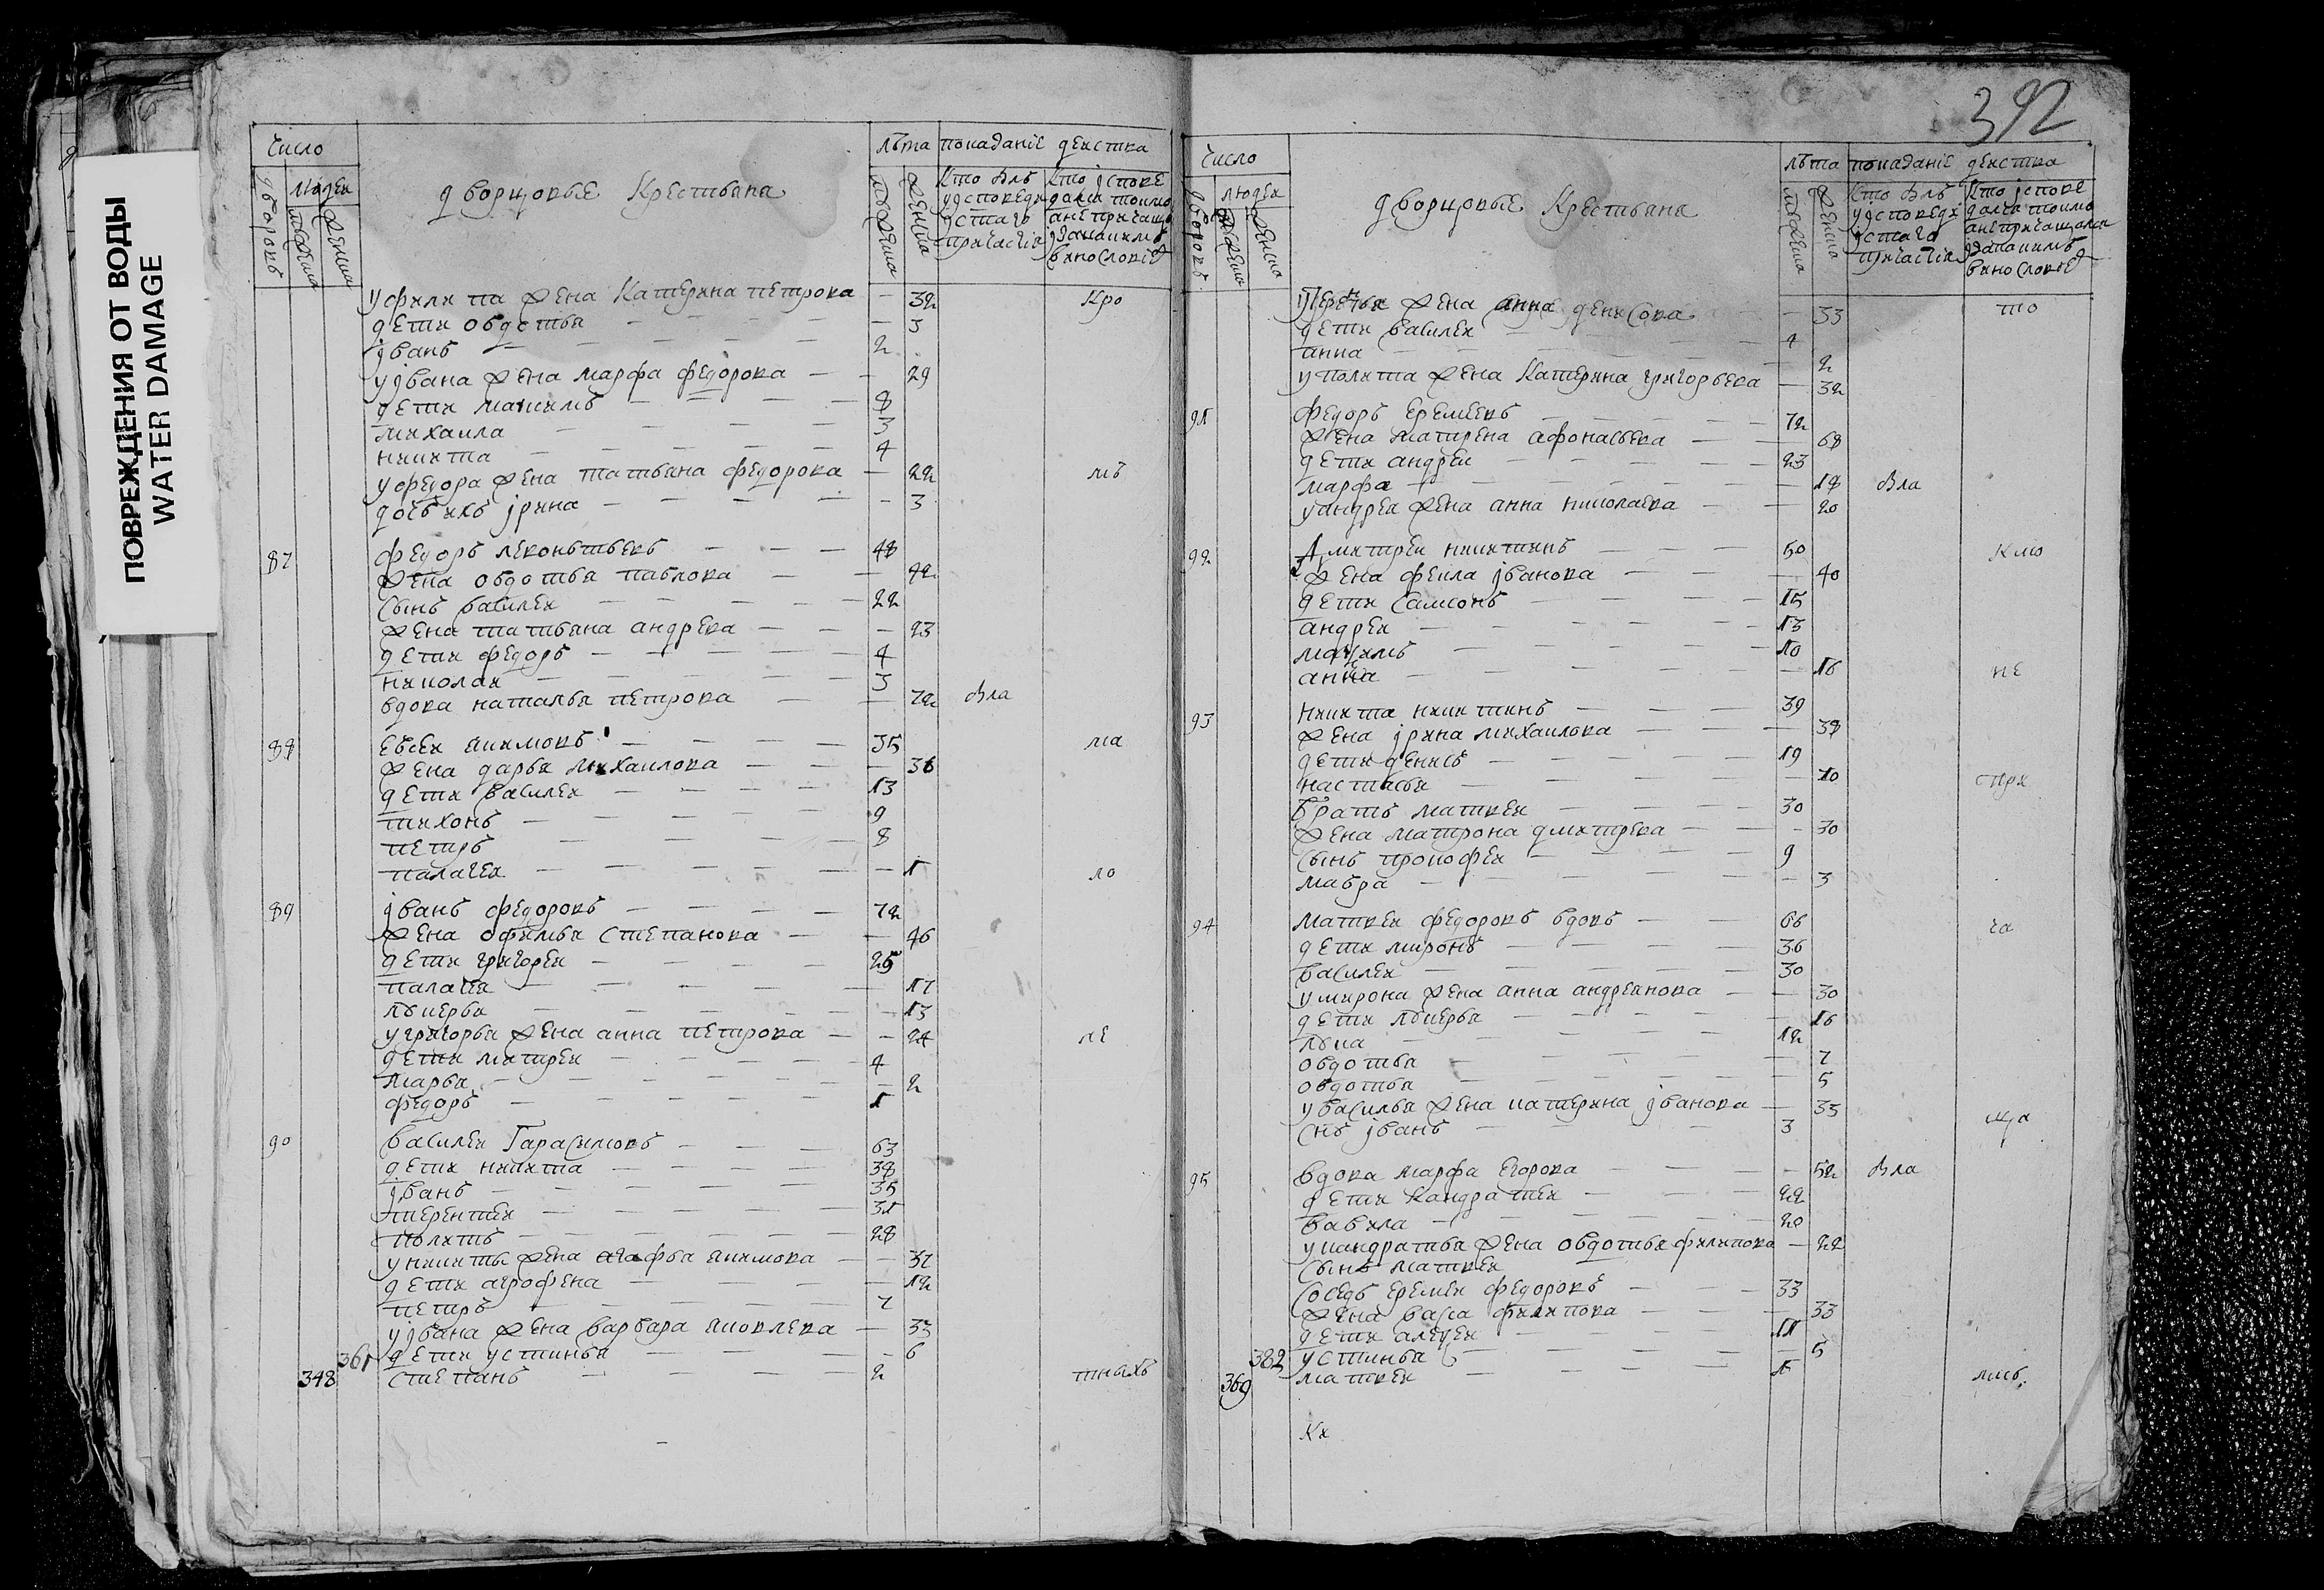 ПОВРЕЖДЕНИЯ ОТ ВОДЫ
WATER DAMAGE
число
дворовъ
людеи
мужеска
женска
дворцовые Крестьяна
лѣта
мужеска
женска
показаніе деиства
Кто былъ
у исповеди
и стаго
причастіа
Кто испове
дался токмо
а не причащался
и за какимъ
винословіе
у филипа жена Катерина петрова — 32 Кро
дети овдотья — 3
иванъ — 2
у ивана жена марфа федорова — 29
дети маѯимъ — 8
михаила — 3
никита — 4
у федора жена татьяна федорова — 22 мѣ
дочь ихъ ирина — 3
87 федоръ леконътьевъ — 48
жена овдотья павлова — 42
сынъ василеи — 22
жена татьяна андреева — 23
дети федоръ — 4
николаи — 3
вдова наталья петрова — 72 Была
88 евсеи якимовъ — 35 ма
жена дарья михаилова — 36
дети василеи — 13
тихонъ — 9
петръ — 8
палагея — 1 ло
89 иванъ федоровъ — 72
жена офимья степанова — 46
дети григореи — 25
палагея — 17
лукерья — 13
у григорья жена анна петрова — 24 ле
дети митреи — 4
марья — 2
федоръ — 1
90 василеи Гарасимовъ — 63
дети никита — 38
иванъ — 35
терентеи — 31
политъ — 28
у никиты жена агафья якимова — 37
дети агрофена — 12
петръ — 7
у ивана жена варвара яковлева — 33
361 дети устинья — 6
348 степанъ — 2 тныхъ
392
число
дворовъ
людеи
мужеска
женска
дворцовые Крестьяна
лѣта
мужеска
женска
показаніе деиства
Кто былъ
у исповеди
и стаго
причастіа
Кто испове
дался токмо
а не причащался
и за какимъ
винословіе
жена анна денисова — 33 то
дети василеи — 4
анна — 2
у полита жена Катерина григорьева — 32
91 федоръ еремеевъ — 72
жена матрена афонасьева — 68
дети андреи — 23
марфа — 18 Была
у андрея жена анна николаева — 20
92 Дмитреи никитинъ — 50 кмо
жена фекла иванова — 40
дети самсонъ — 15
андреи — 13
маѯимъ — 10
анна — 16 не
93 никита никитинъ — 39
жена ирина михаилова — 38
дети денисъ — 19
настасья — 10 при
братъ матвеи — 30
жена матрона дмитрева — 30
сынъ прокофеи — 9
мавра — 3
94 матвеи федоровъ вдовъ — 66 ча
дети миронъ — 36
василеи — 30
у мирона жена анна андреянова — 30
дети лукерья — 16
лука — 12
овдотья — 7
овдотья — 5
у василья жена катерина иванова — 35
снъ иванъ — 3 ща
95 вдова марфа егорова — 52 Была
дети кандратеи — 22
вавила — 20
у кандратья жена овдотья филипова — 22
сынъ матвеи
соседъ еремеи федоровъ — 33
жена васа филипова — 33
дети алеѯеи — 11
382 устинья — 5
369 матвеи — 1 лись
Ки